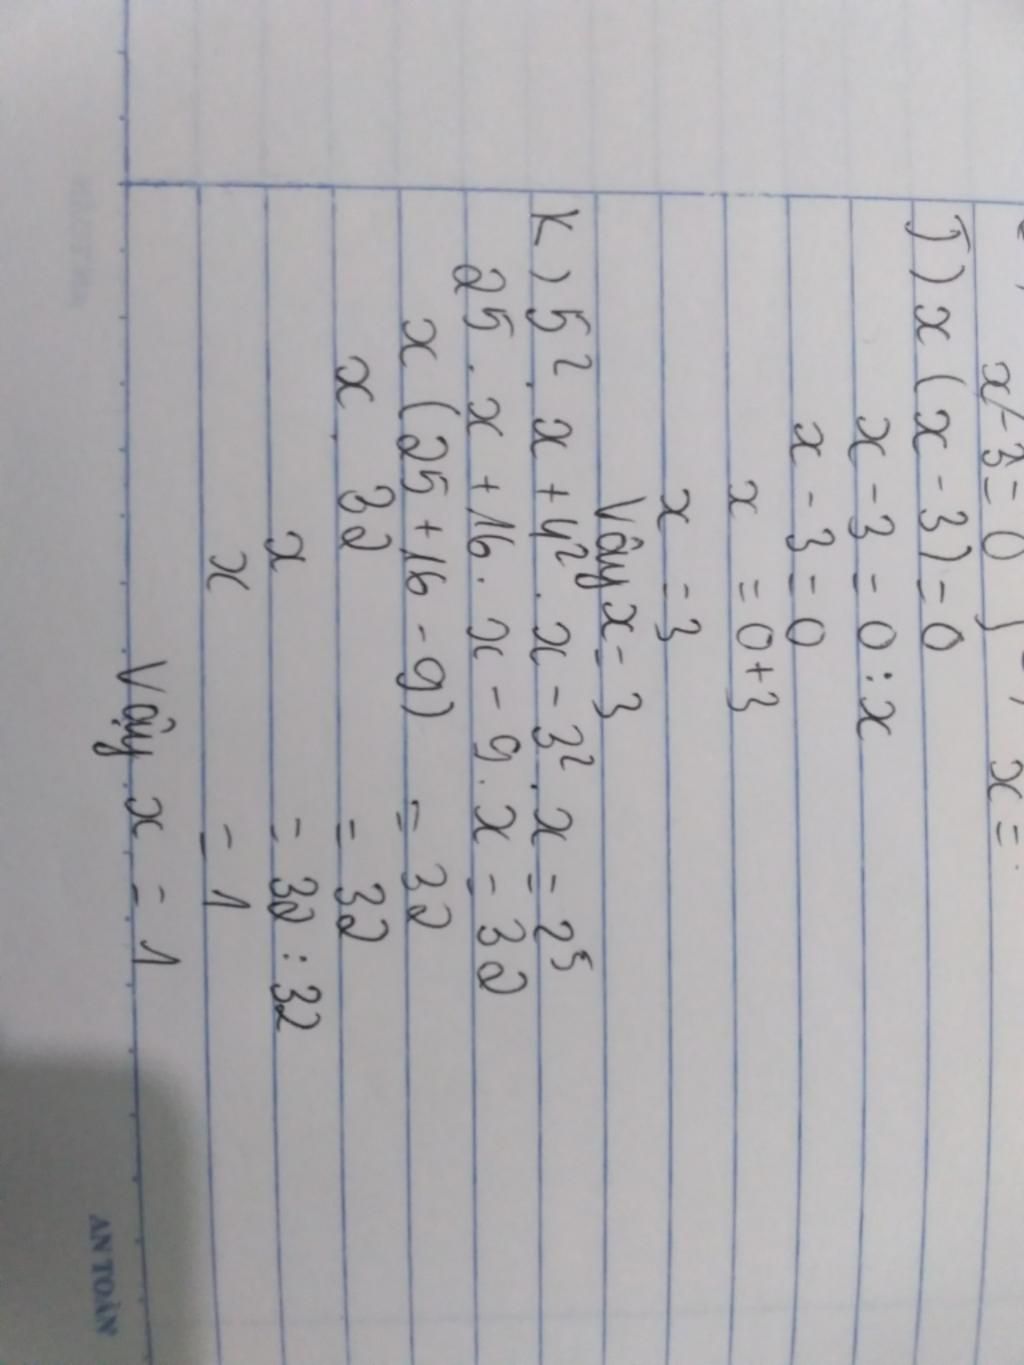 x - 3 = 0 } x =
J) x (x - 3) = 0
x - 3 = 0 : x
x - 3 = 0
x = 0 + 3
x = 3
Vậy x = 3
K) 5². x + 4². x - 3². x = 2⁵
25. x + 16. x - 9. x = 32
x (25 + 16 - 9) = 32
x. 32 = 32
x = 32 : 32
x = 1
Vậy x = 1
AN TOÀN